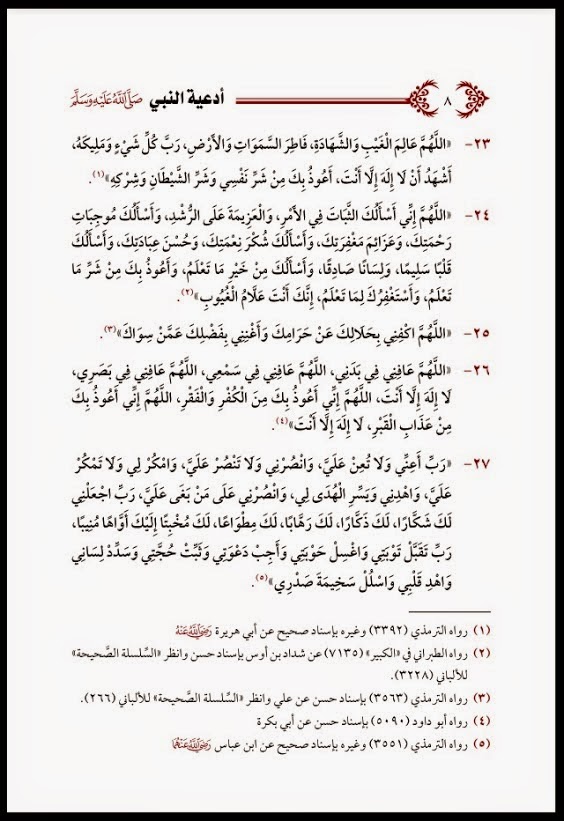 أدعية النبي صَلَّى اللَّهُ عَلَيْهِ وَسَلَّمَ
٨
٢٣- «اللَّهُمَّ عَالِمَ الْغَيْبِ وَالشَّهَادَةِ، فَاطِرَ السَّمَوَاتِ وَالْأَرْضِ، رَبَّ كُلِّ شَيْءٍ وَمَلِيكَهُ،
أَشْهَدُ أَنْ لَا إِلَهَ إِلَّا أَنْتَ، أَعُوذُ بِكَ مِنْ شَرِّ نَفْسِي وَشَرِّ الشَّيْطَانِ وَشِرْكِهِ»(١).
٢٤- «اللَّهُمَّ إِنِّي أَسْأَلُكَ الثَّبَاتَ فِي الْأَمْرِ، وَالْعَزِيمَةَ عَلَى الرُّشْدِ، وَأَسْأَلُكَ مُوجِبَاتِ
رَحْمَتِكَ، وَعَزَائِمَ مَغْفِرَتِكَ، وَأَسْأَلُكَ شُكْرَ نِعْمَتِكَ، وَحُسْنَ عِبَادَتِكَ، وَأَسْأَلُكَ
قَلْبًا سَلِيمًا، وَلِسَانًا صَادِقًا، وَأَسْأَلُكَ مِنْ خَيْرِ مَا تَعْلَمُ، وَأَعُوذُ بِكَ مِنْ شَرِّ مَا
تَعْلَمُ، وَأَسْتَغْفِرُكَ لِمَا تَعْلَمُ، إِنَّكَ أَنْتَ عَلَّامُ الْغُيُوبِ»(٢).
٢٥- «اللَّهُمَّ اكْفِنِي بِحَلَالِكَ عَنْ حَرَامِكَ وَأَغْنِنِي بِفَضْلِكَ عَمَّنْ سِوَاكَ»(٣).
٢٦- «اللَّهُمَّ عَافِنِي فِي بَدَنِي، اللَّهُمَّ عَافِنِي فِي سَمْعِي، اللَّهُمَّ عَافِنِي فِي بَصَرِي،
لَا إِلَهَ إِلَّا أَنْتَ، اللَّهُمَّ إِنِّي أَعُوذُ بِكَ مِنَ الْكُفْرِ وَالْفَقْرِ، اللَّهُمَّ إِنِّي أَعُوذُ بِكَ
مِنْ عَذَابِ الْقَبْرِ، لَا إِلَهَ إِلَّا أَنْتَ»(٤).
٢٧- «رَبِّ أَعِنِّي وَلَا تُعِنْ عَلَيَّ، وَانْصُرْنِي وَلَا تَنْصُرْ عَلَيَّ، وَامْكُرْ لِي وَلَا تَمْكُرْ
عَلَيَّ، وَاهْدِنِي وَيَسِّرِ الْهُدَى لِي، وَانْصُرْنِي عَلَى مَنْ بَغَى عَلَيَّ، رَبِّ اجْعَلْنِي
لَكَ شَكَّارًا، لَكَ ذَكَّارًا، لَكَ رَهَّابًا، لَكَ مِطْوَاعًا، لَكَ مُخْبِتًا إِلَيْكَ أَوَّاهًا مُنِيبًا،
رَبِّ تَقَبَّلْ تَوْبَتِي وَاغْسِلْ حَوْبَتِي وَأَجِبْ دَعْوَتِي وَثَبِّتْ حُجَّتِي وَسَدِّدْ لِسَانِي
وَاهْدِ قَلْبِي وَاسْلُلْ سَخِيمَةَ صَدْرِي»(٥).
(١) رواه الترمذي (٣٣٩٢) وغيره بإسناد صحيح عن أبي هريرة رَضِيَ اللَّهُ عَنْهُ
(٢) رواه الطبراني في «الكبير» (٧١٣٥) عن شداد بن أوس بإسناد حسن وانظر «السِّلسلة الصَّحيحة»
للألباني (٣٢٢٨).
(٣) رواه الترمذي (٣٥٦٣) بإسناد حسن عن علي وانظر «السِّلسلة الصَّحيحة» للألباني (٢٦٦).
(٤) رواه أبو داود (٥٠٩٠) بإسناد حسن عن أبي بكرة
(٥) رواه الترمذي (٣٥٥١) وغيره بإسناد صحيح عن ابن عباس رَضِيَ اللَّهُ عَنْهُمَا